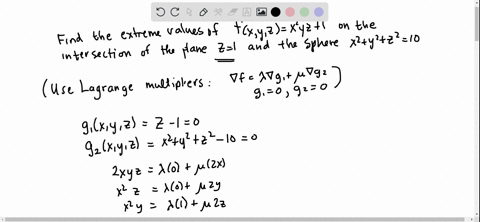 Find the extreme values of f(x,y,z)=x²yz+1 on the
intersection of the plane z=1 and the sphere x²+y²+z²=10
(Use Lagrange multipliers: ∇f=λ∇g₁+μ∇g₂
g₁=0, g₂=0)
g₁(x,y,z) = z-1=0
g₂(x,y,z) = x²+y²+z²-10=0
2xyz = λ(0)+μ(2x)
x²z = λ(0)+μ2y
x²y = λ(1)+μ2z